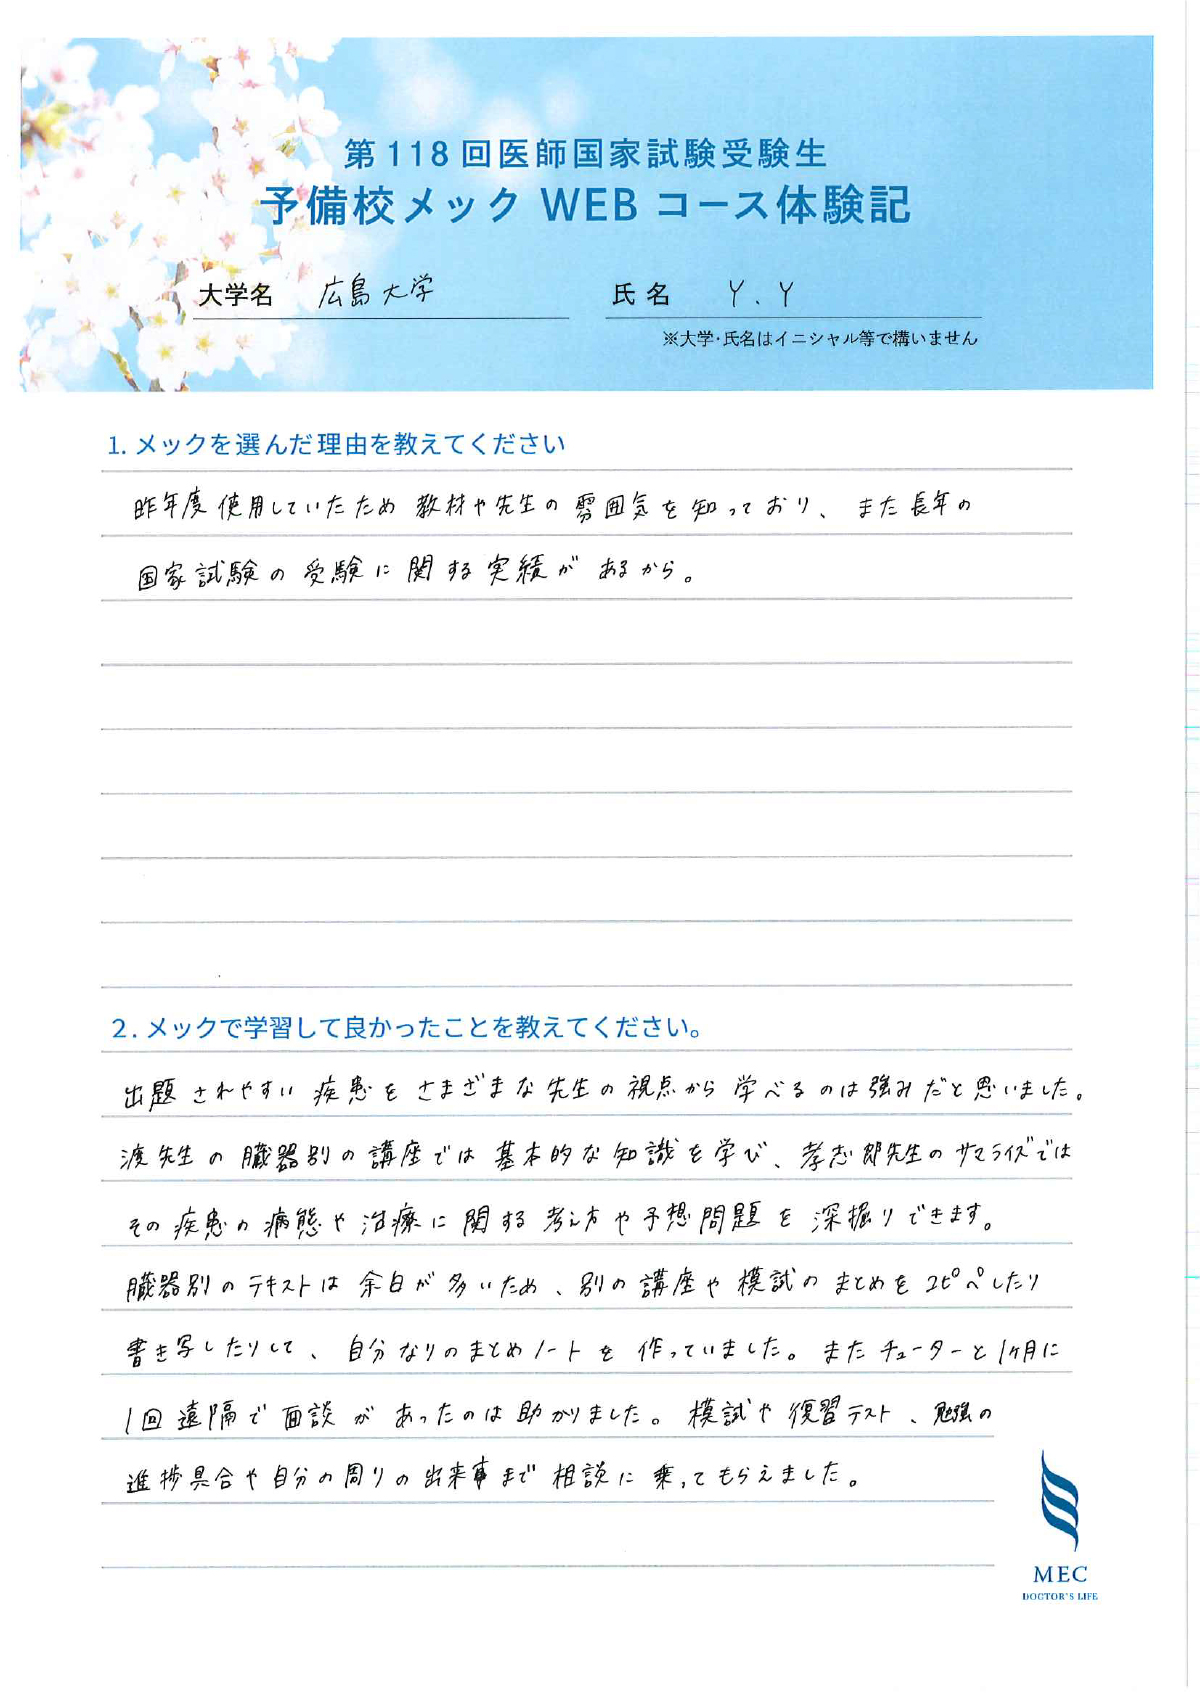 第118回医師国家試験受験生
予備校メック WEB コース体験記
大学名 広島大学 氏名 Y.Y
※大学・氏名はイニシャル等で構いません
1. メックを選んだ理由を教えてください
昨年度使用していたため教材や先生の雰囲気を知っており、また長年の
国家試験の受験に関する実績があるから。
2. メックで学習して良かったことを教えてください。
出題されやすい疾患をさまざまな先生の視点から学べるのは強みだと思いました。
渡先生の臓器別の講座では基本的な知識を学び、孝志郎先生のサマライズでは
その疾患の病態や治療に関する考え方や予想問題を深掘りできます。
臓器別のテキストは余白が多いため、別の講座や模試のまとめをコピペしたり
書き写したりして、自分なりのまとめノートを作っていました。またチューターと1ヶ月に
1回遠隔で面談があったのは助かりました。模試や復習テスト、勉強の
進捗具合や自分の周りの出来事まで相談に乗ってもらえました。
MEC
DOCTOR'S LIFE